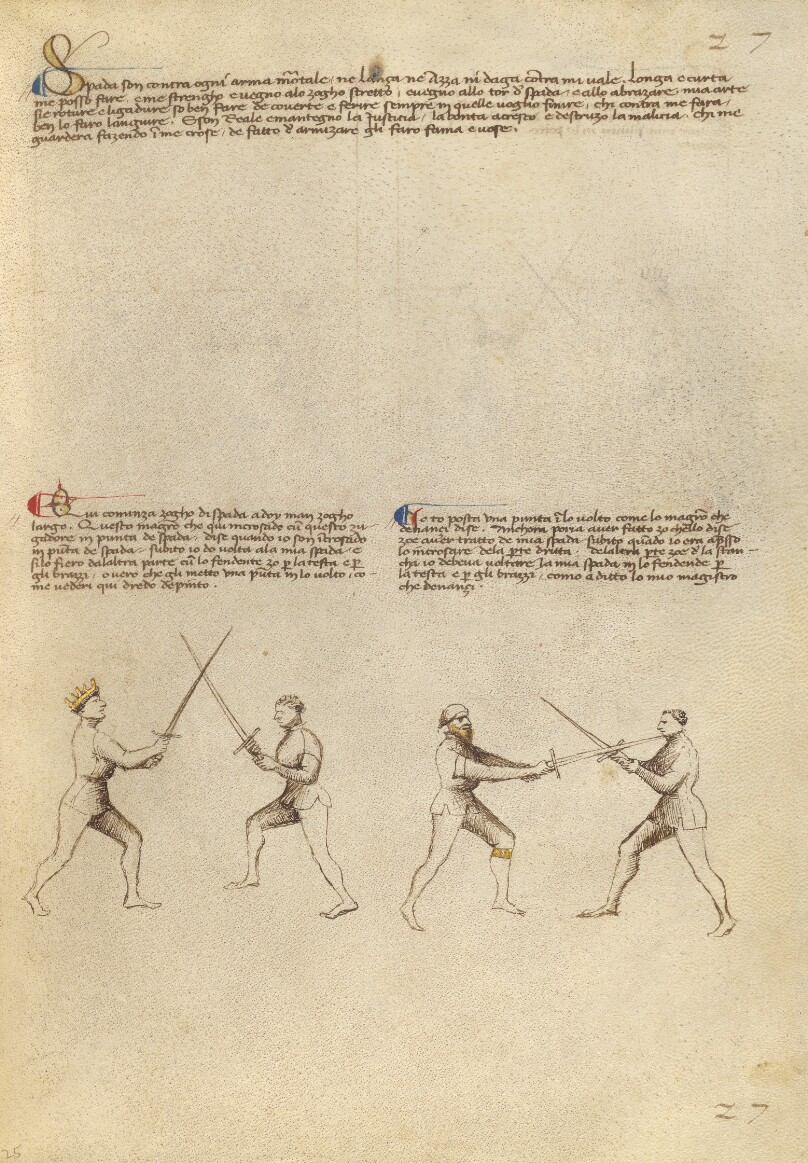 27
Spada son contra ogni arma mortale, ne lanza ne Azza ni daga contra mi vale. Longa e curta
me posso fare, e me strengho e vegno alo zogho stretto, e vegno allo tor d' spada, e allo abrazare, mia arte
sie roture e ligadure so ben fare de coverte e ferire sempre in quelle voglio finire, chi contra me fara,
ben lo faro languire. E son Reale e mantegno la Justicia, la bonta acresco e destruzo la malicia. Chi me
guardera fazendo in me crose, de fatto d' armizare gli faro fama e vose.
Qui cominza zogho di spada a doy man zogho
largo. Questo magro che qui incrosado cum questo zu-
gadore in punta de spada, dise quando io son incrosado
in punta de spada, subito io do volta ala mia spada, e
si lo fiero dalaltra parte cum lo fendente zo per la testa e per
gli brazzi, overo che gli metto una punta in lo volto, co-
me vederi qui dredo depinto.
Io to posta una punta in lo volto come lo magro che
denanci dise. Anchora poria aver fatto zo chello dise
zoe aver tratto de mia spada subito quando io era apresso
lo incrosare dela parte dritta, delaltra parte zoe d' la stan-
cha io debeva voltare la mia spada in lo fendende per
la testa e per gli brazzi, como a ditto lo mio magistro
che denançi.
27
25